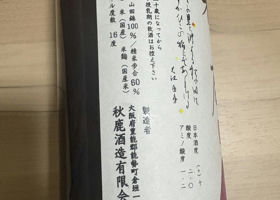 日本酒度 (+) 十
酸度 二・〇
アミノ酸度 一・二
十歳になってから
授乳期の飲酒はお控え下さい
山田錦100% / 精米歩合60%
米(国産) 米麹(国産米)
ル度数 16度
製造者
大阪府豊能郡能勢町倉垣一
秋鹿酒造有限会